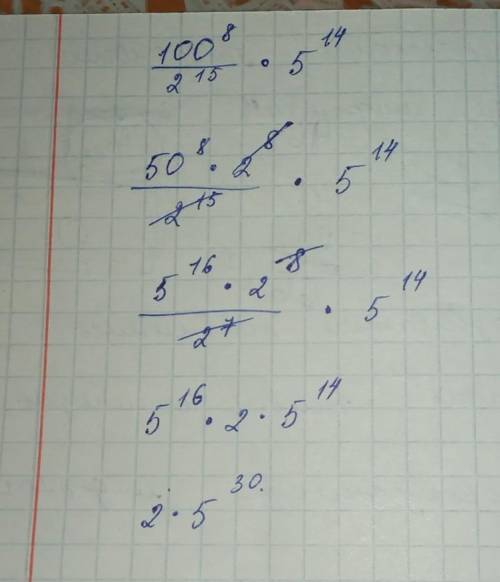 100^8 / 2^15 · 5^14
50^8 · 2^8 / 2^15 · 5^14
5^16 · 2^8 / 2^7 · 5^14
5^16 · 2 · 5^14
2 · 5^30.